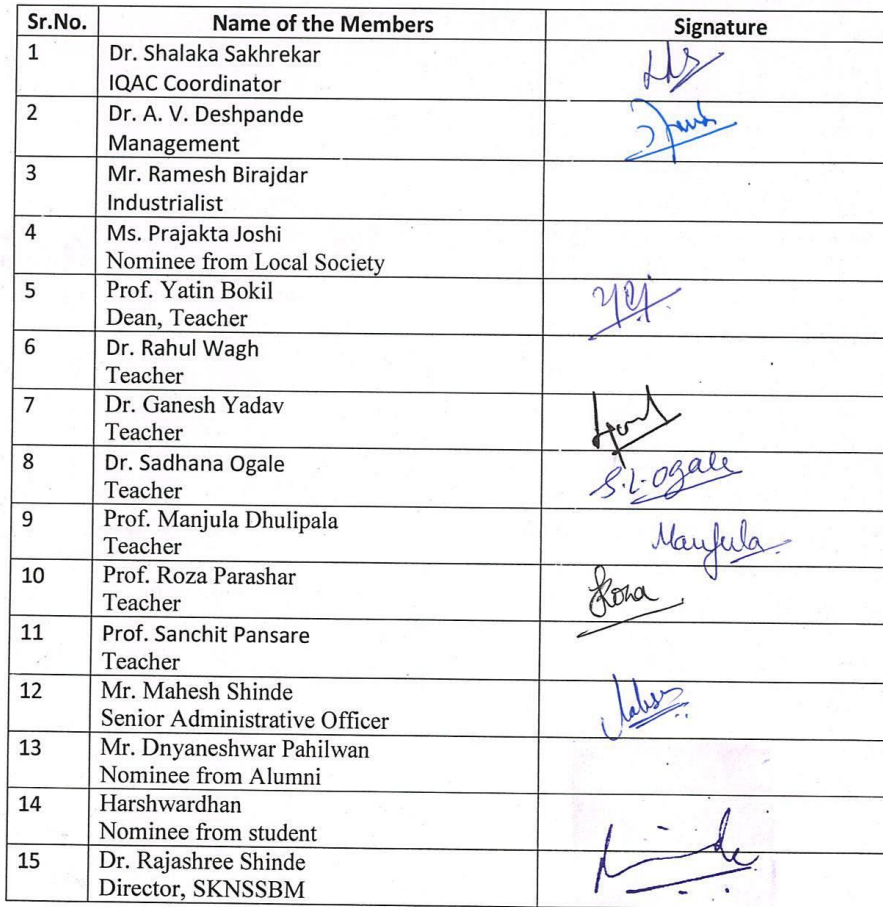 Sr.No. Name of the Members Signature
1 Dr. Shalaka Sakhrekar
IQAC Coordinator
2 Dr. A. V. Deshpande
Management
3 Mr. Ramesh Birajdar
Industrialist
4 Ms. Prajakta Joshi
Nominee from Local Society
5 Prof. Yatin Bokil
Dean, Teacher
6 Dr. Rahul Wagh
Teacher
7 Dr. Ganesh Yadav
Teacher
8 Dr. Sadhana Ogale S.L.Ogale
Teacher
9 Prof. Manjula Dhulipala Manjula
Teacher
10 Prof. Roza Parashar Roza
Teacher
11 Prof. Sanchit Pansare
Teacher
12 Mr. Mahesh Shinde
Senior Administrative Officer
13 Mr. Dnyaneshwar Pahilwan
Nominee from Alumni
14 Harshwardhan
Nominee from student
15 Dr. Rajashree Shinde
Director, SKNSSBM